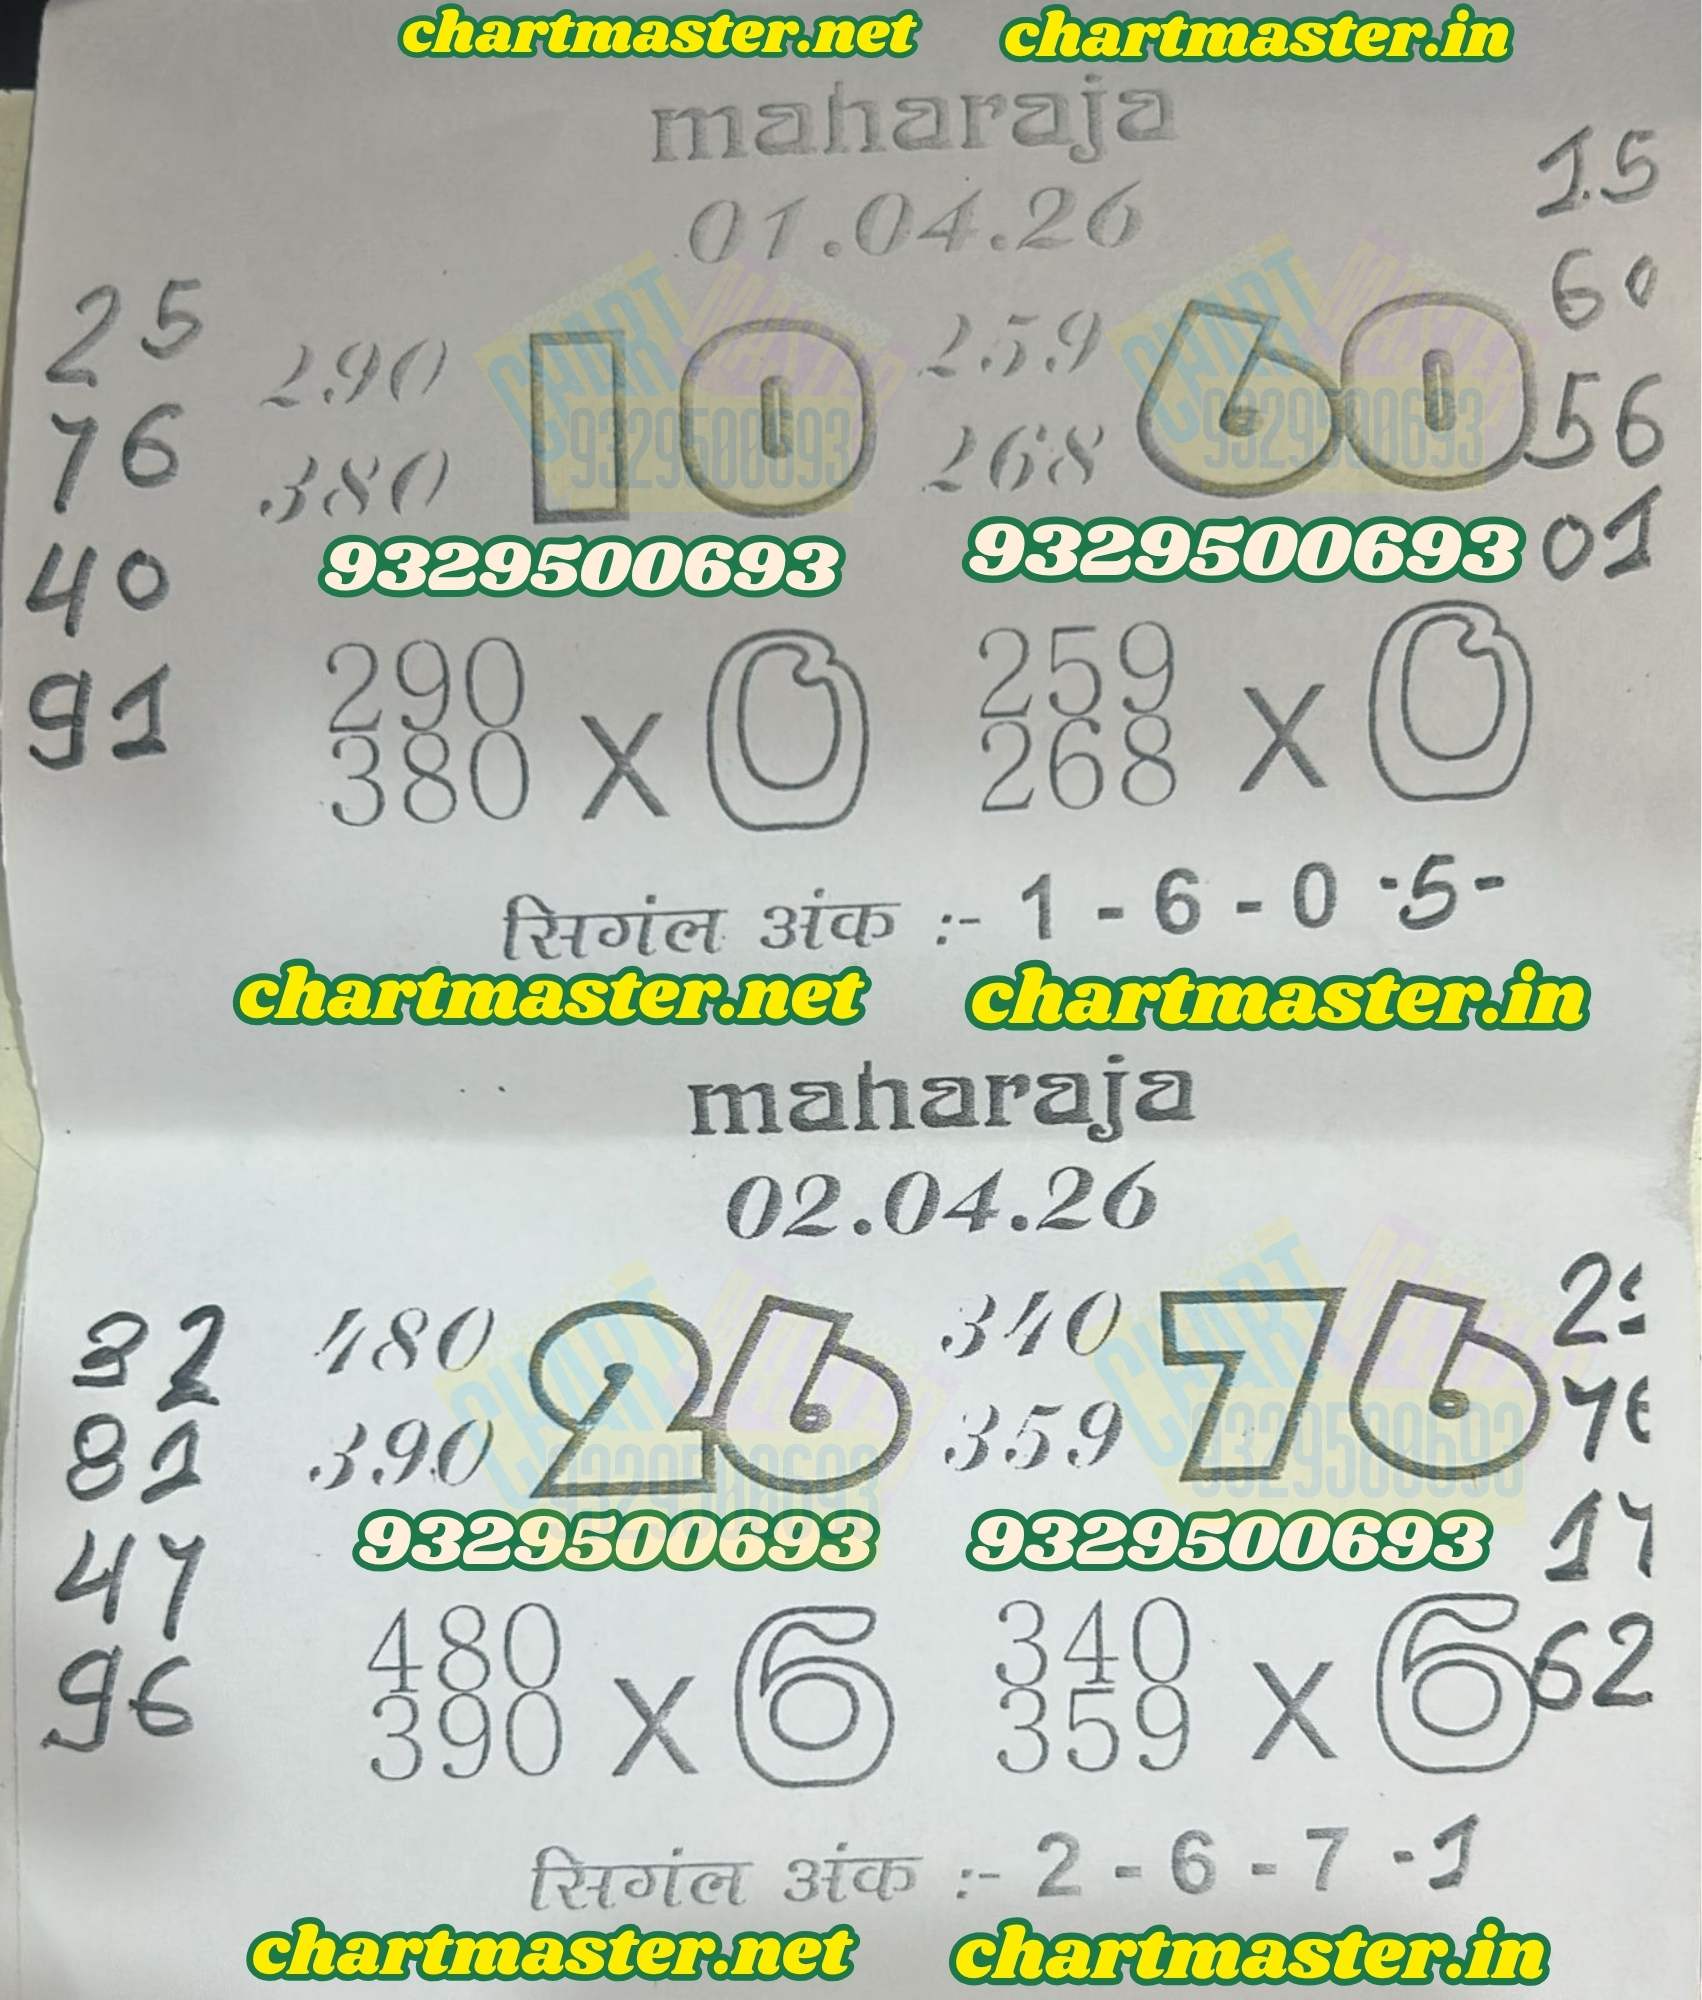 chartmaster.net chartmaster.in
maharaja
01.04.26
15
60
56
01
25
76
40
91
290 10 259 60
380 268
9329500693 9329500693
290 259
380 x 0 268 x 0
सिगंल अंक :- 1 - 6 - 0 -5-
chartmaster.net chartmaster.in
maharaja
02.04.26
32
81
47
96
480 26 340 76
390 359
76
17
62
9329500693 9329500693
480 340
390 x 6 359 x 6
सिगंल अंक :- 2 - 6 - 7 -1
chartmaster.net chartmaster.in